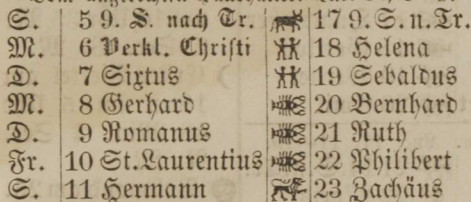 S. 5 9. S. nach Tr. 17 9. S. n. Tr.
M. 6 Verkl. Christi 18 Helena
D. 7 Sixtus 19 Sebaldus
M. 8 Gerhard 20 Bernhard
D. 9 Romanus 21 Ruth
Fr. 10 St. Laurentius 22 Philibert
S. 11 Hermann 23 Zachäus